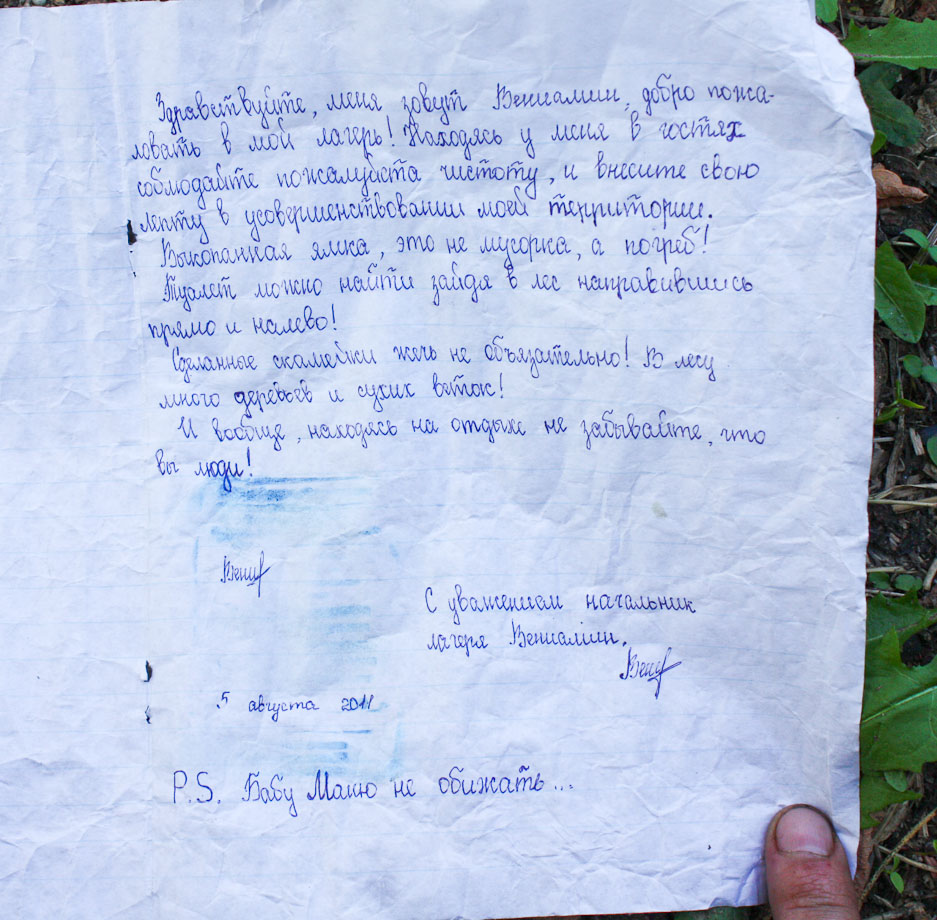 Здравствуйте, меня зовут Вениамин, добро пожа-
ловать в мой лагерь! Находясь у меня в гостях
соблюдайте пожалуйста чистоту, и внесите свою
лепту в усовершенствовании моей территории.
Выкопанная ямка, это не мусорка, а погреб!
Туалет можно найти зайдя в лес направившись
прямо и налево!
Сделанные скамейки жечь не объязательно! В лесу
много деревьев и сухих веток!
И вообще, находясь на отдыхе не забывайте, что
вы люди!
С уважением начальник
лагеря Вениамин.
5 августа 2011
P.S. Бабу Маню не обижать...